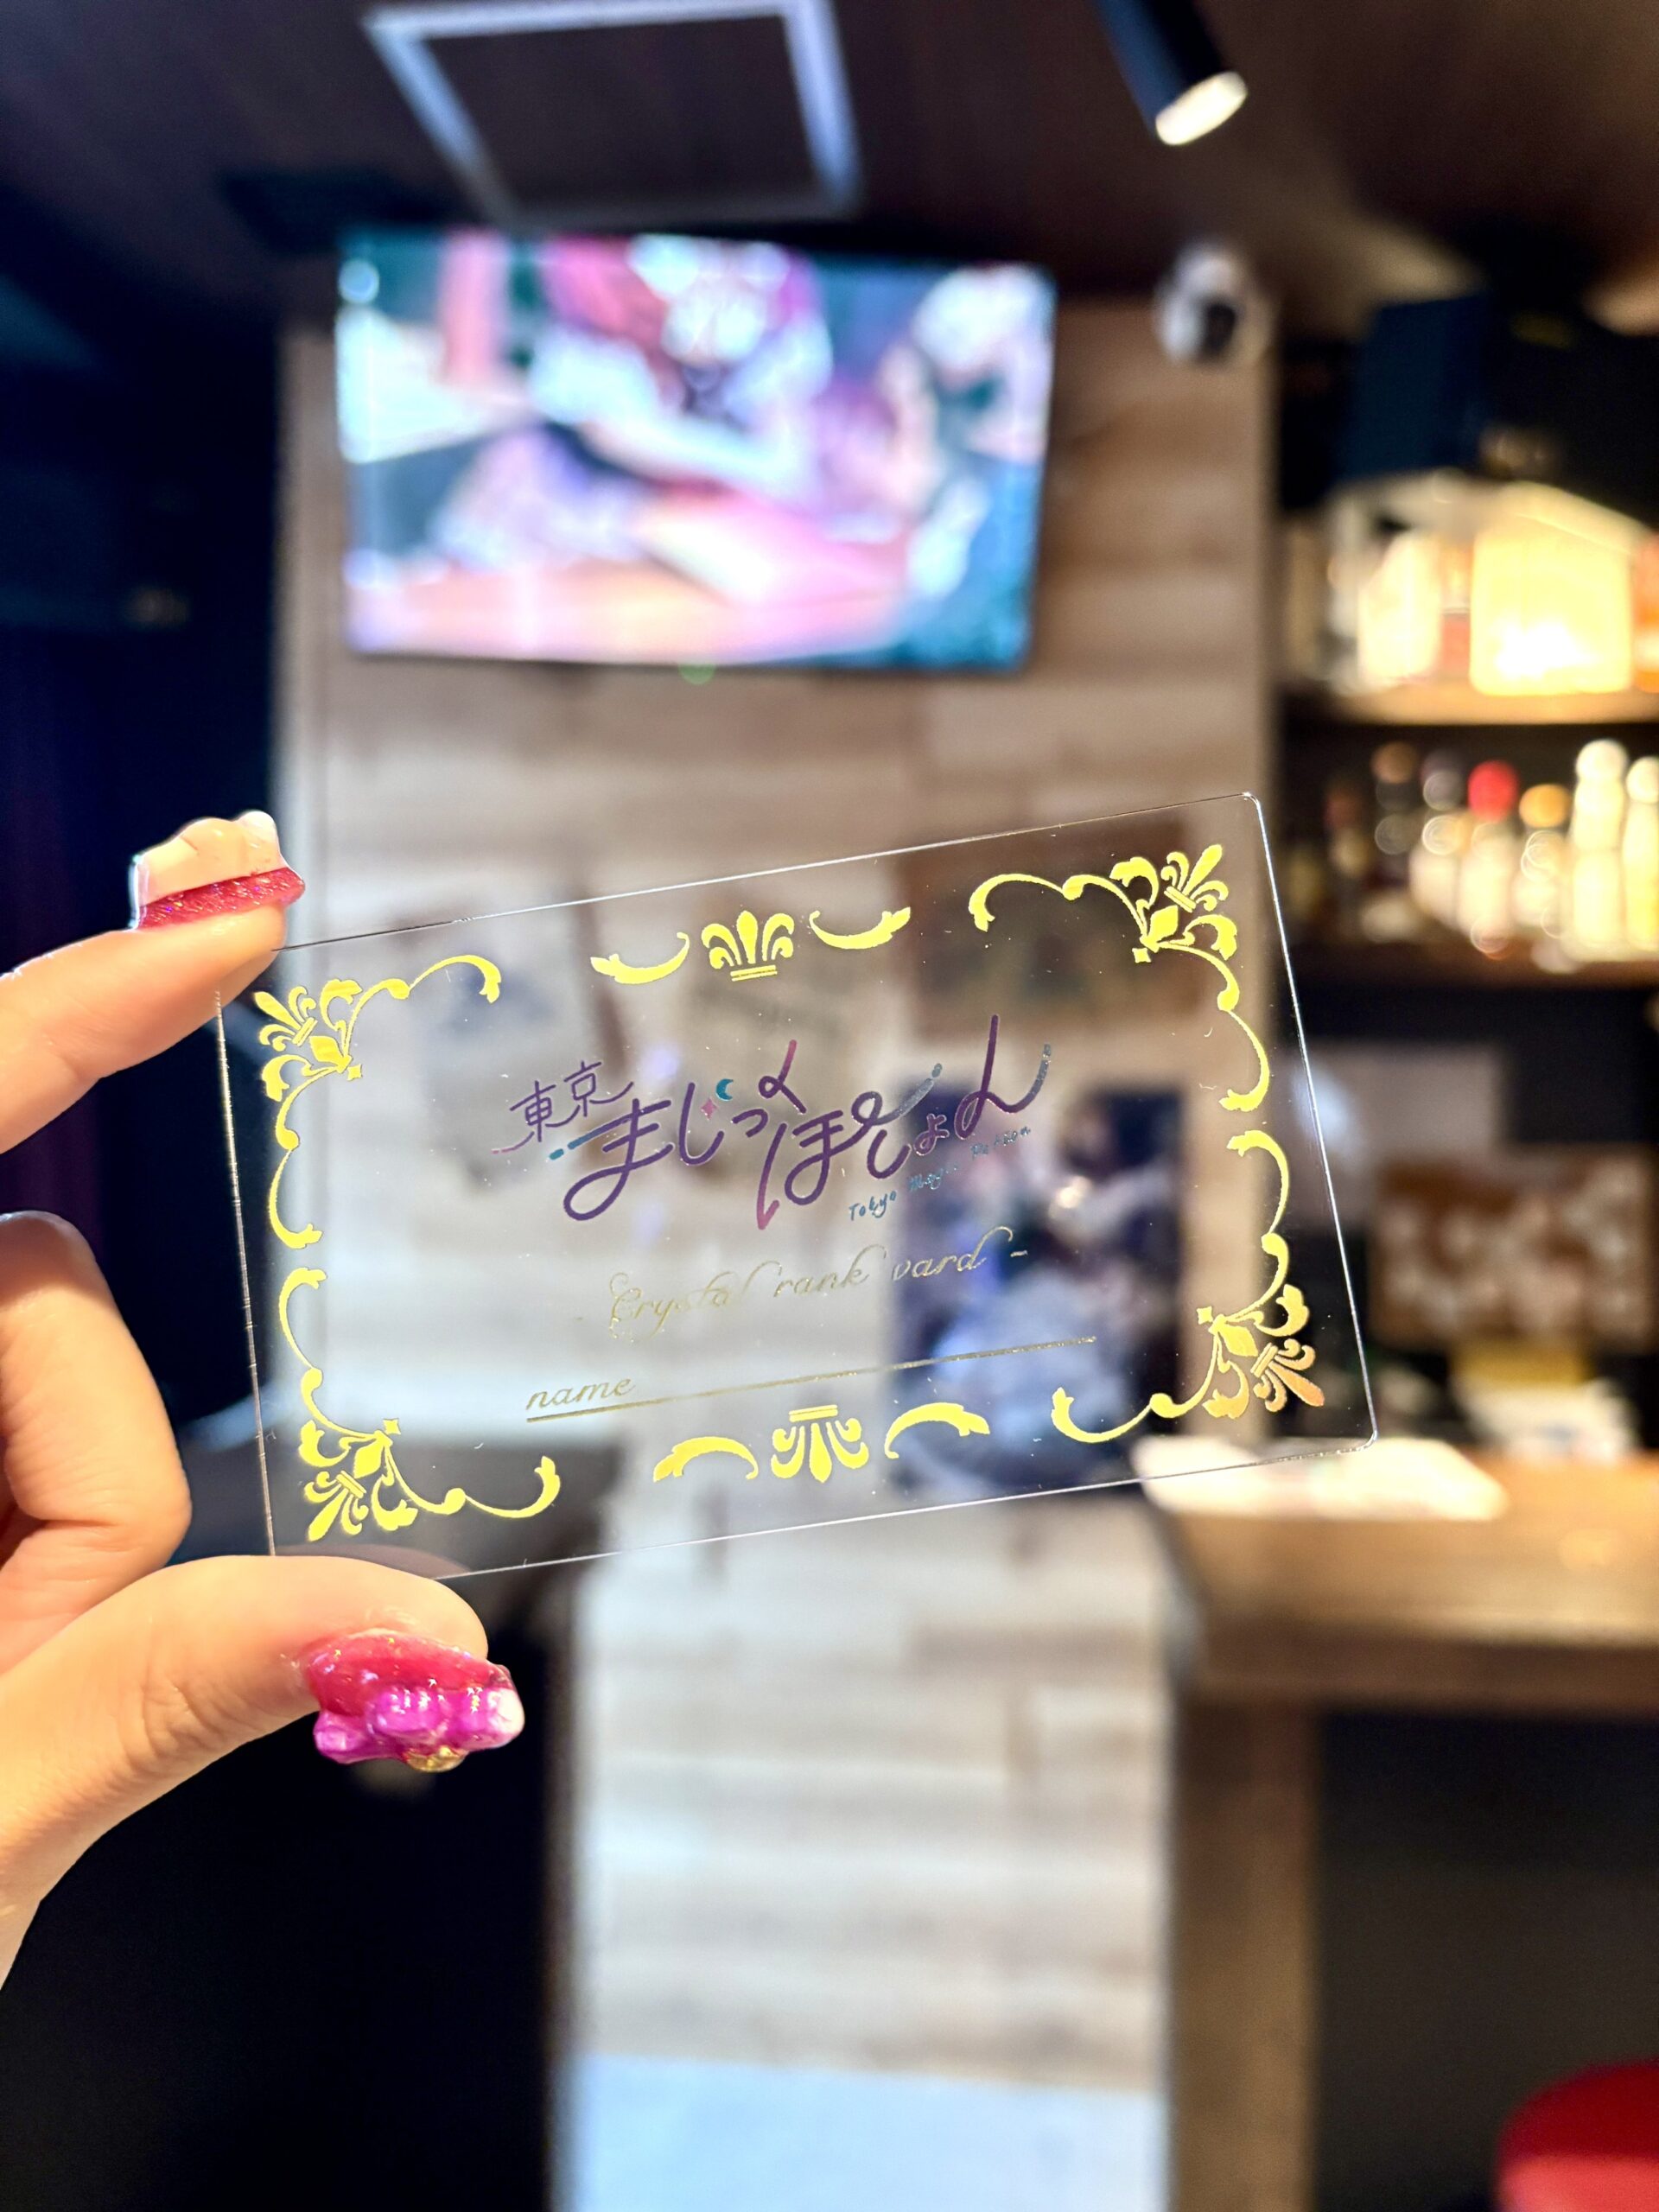 東京
まじっくぽーしょん
Tokyo Magic Potion
- Crystal rank card -
name